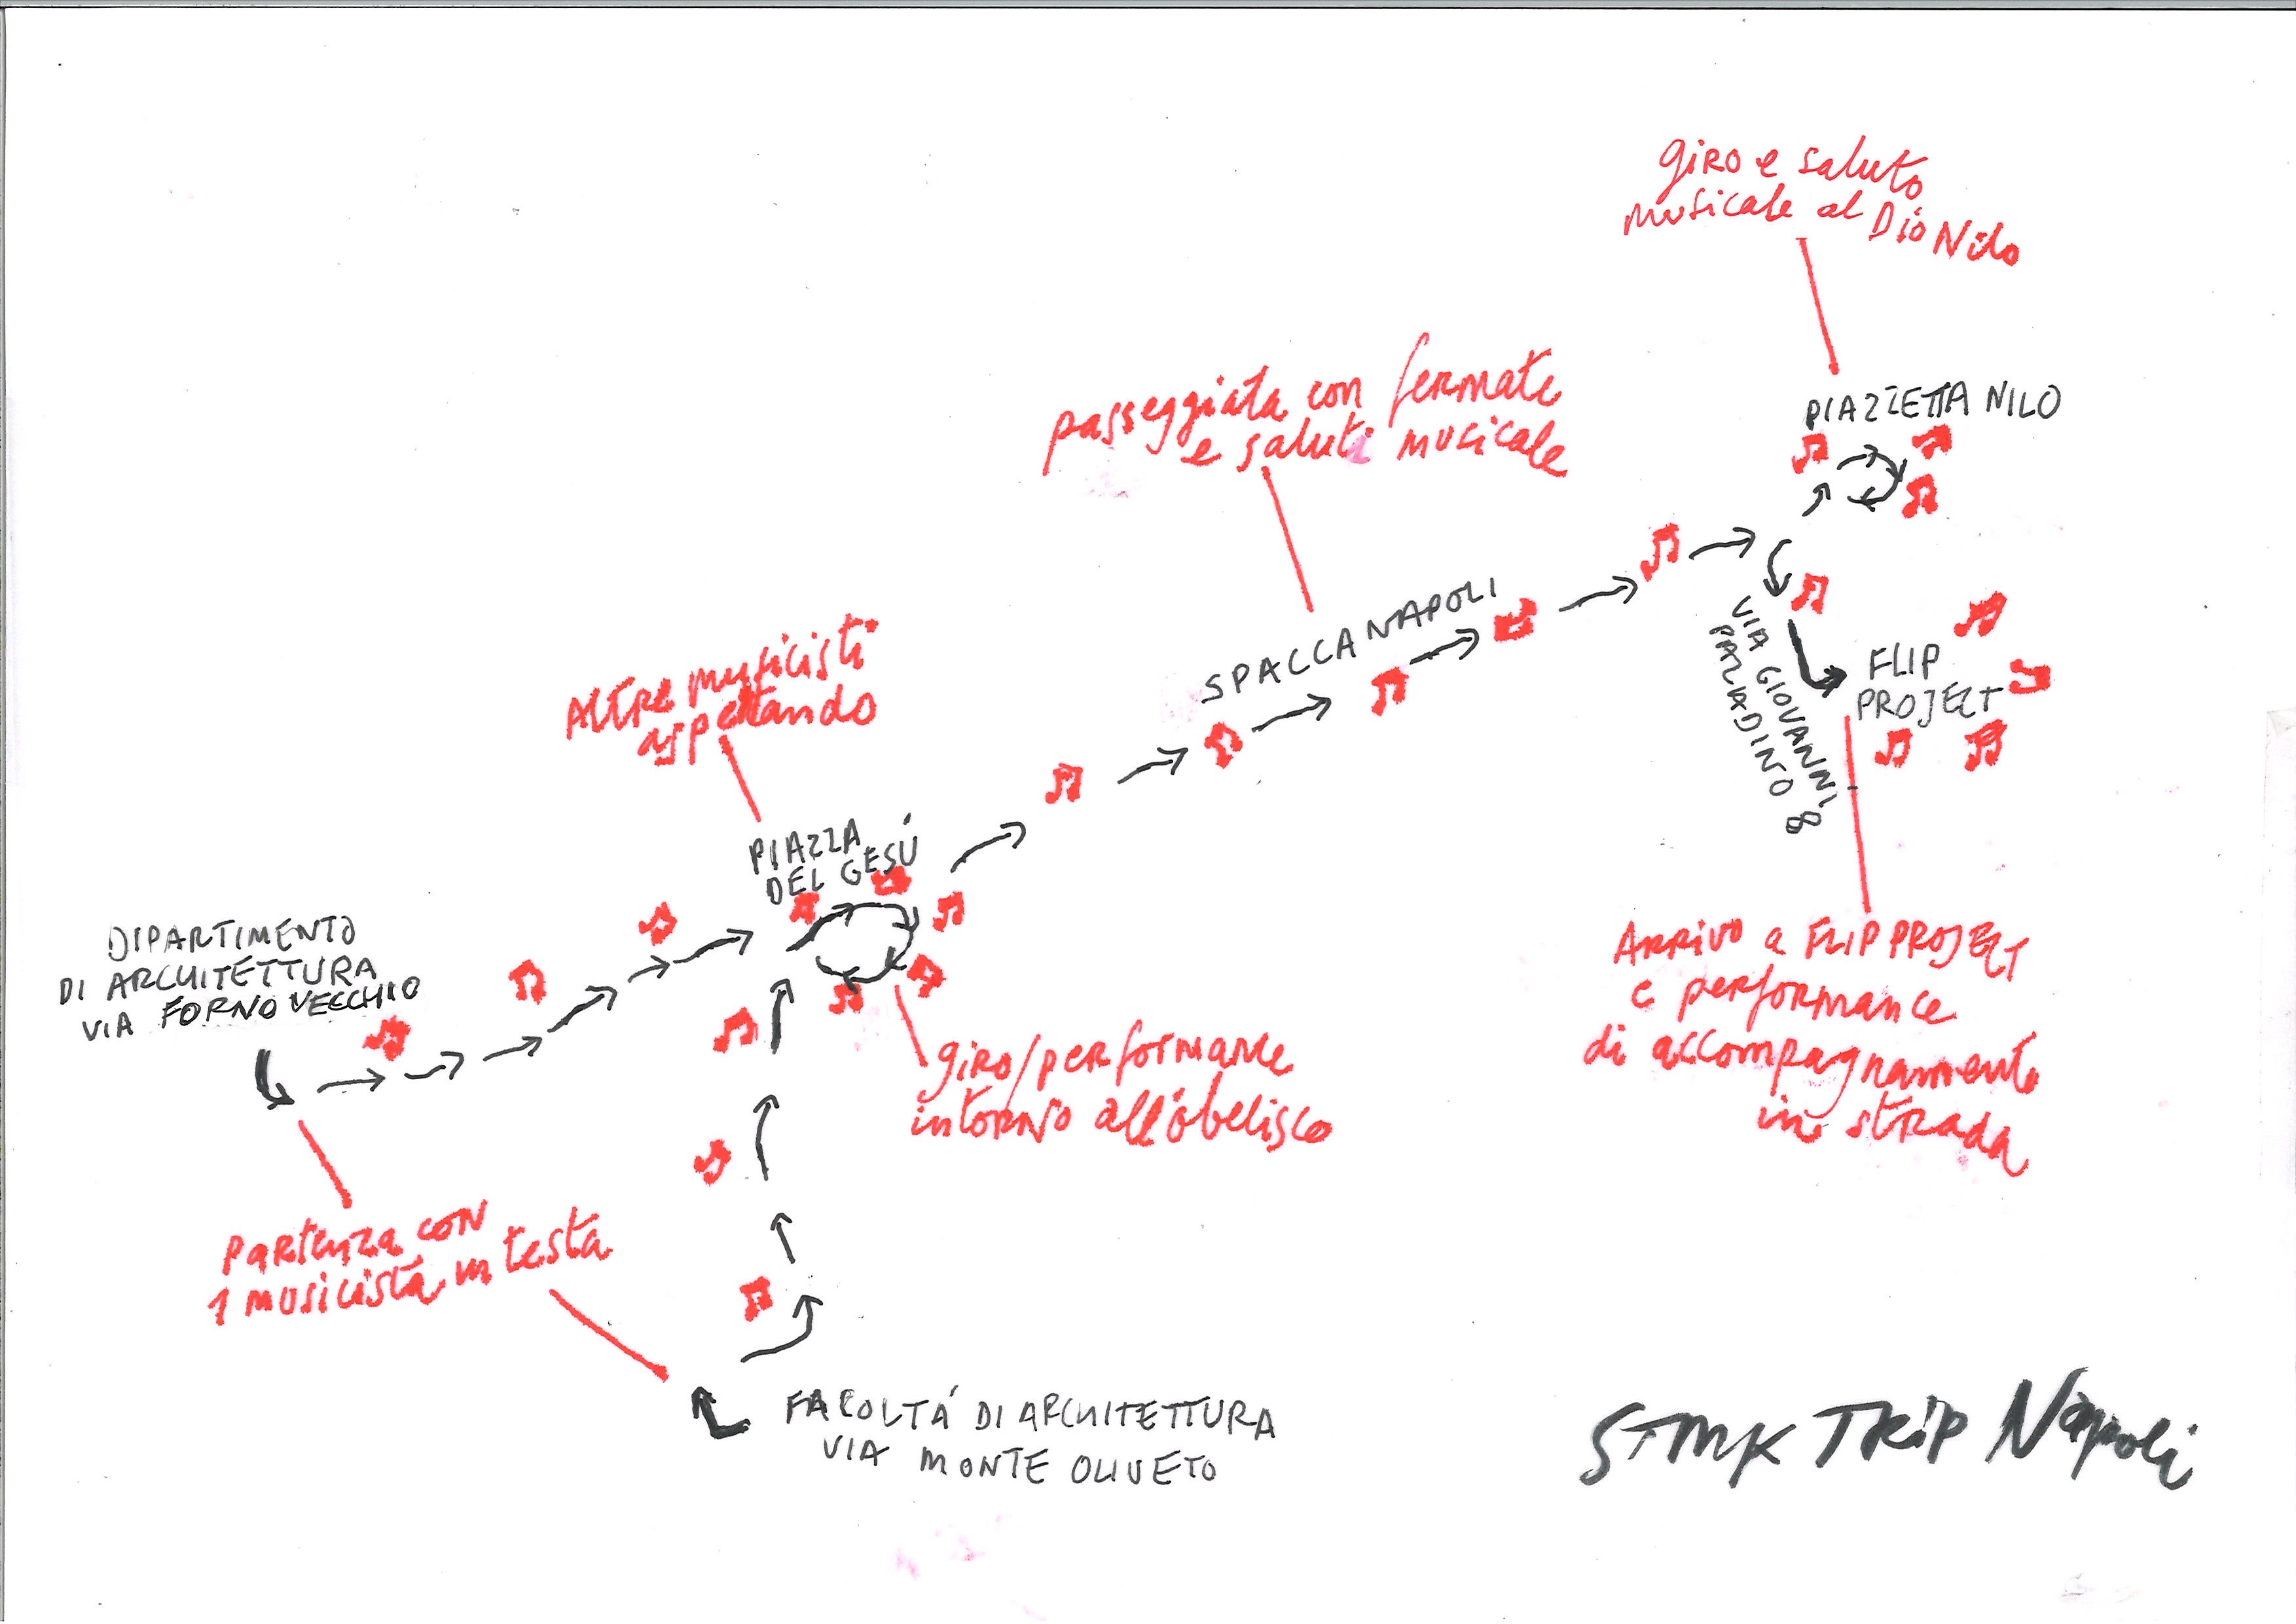 giro e saluto
musicale al Dio Nilo
PIAZZETTA NILO
passeggiata con fermate
e saluti musicale
SPACCANAPOLI
VIA GIOVANNI
PALADINO 8
FLIP
PROJECT
Altre musicisti
aspettando
PIAZZA
DEL GESÚ
DIPARTIMENTO
DI ARCHITETTURA
VIA FORNO VECCHIO
giro/performance
intorno all'obelisco
Arrivo a FLIP PROJECT
e performance
di accompagnamento
in strada
Partenza con
1 musicista in testa
FACOLTÁ DI ARCHITETTURA
VIA MONTE OLIVETO
STMK TRiP Napoli